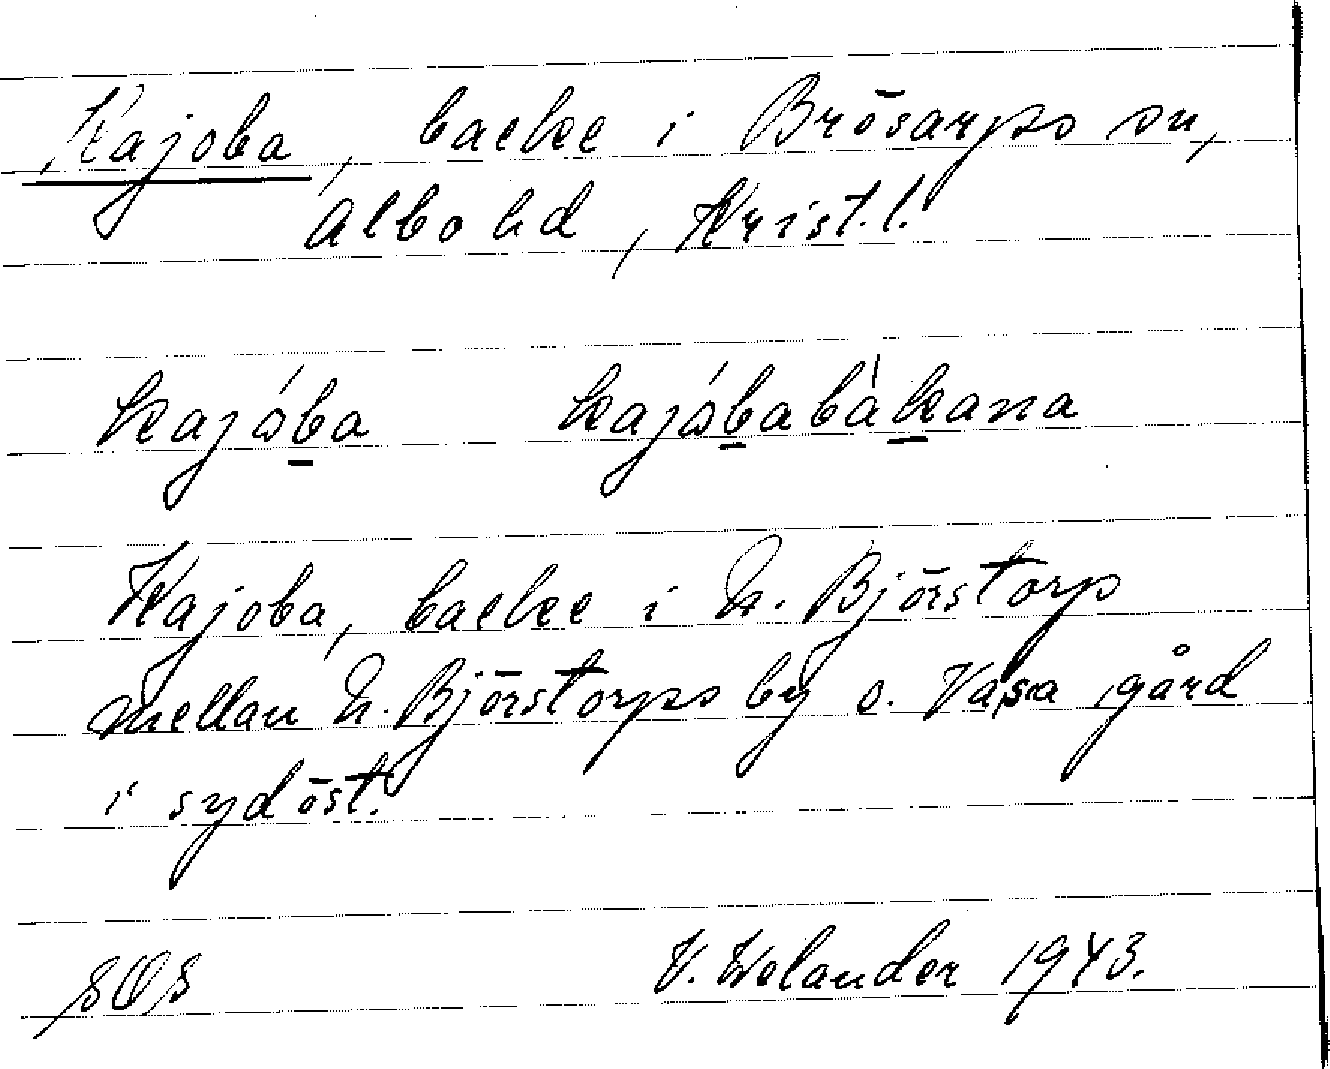 Kajoba, backe i Brösarps sn,
Albo hd, Krist.l.
kajóba kajóbabákana
Kajoba, backe i N. Björstorp
mellan N. Björstorps by o. Vasa gård
i sydöst.
SOS V. Welander 1943.